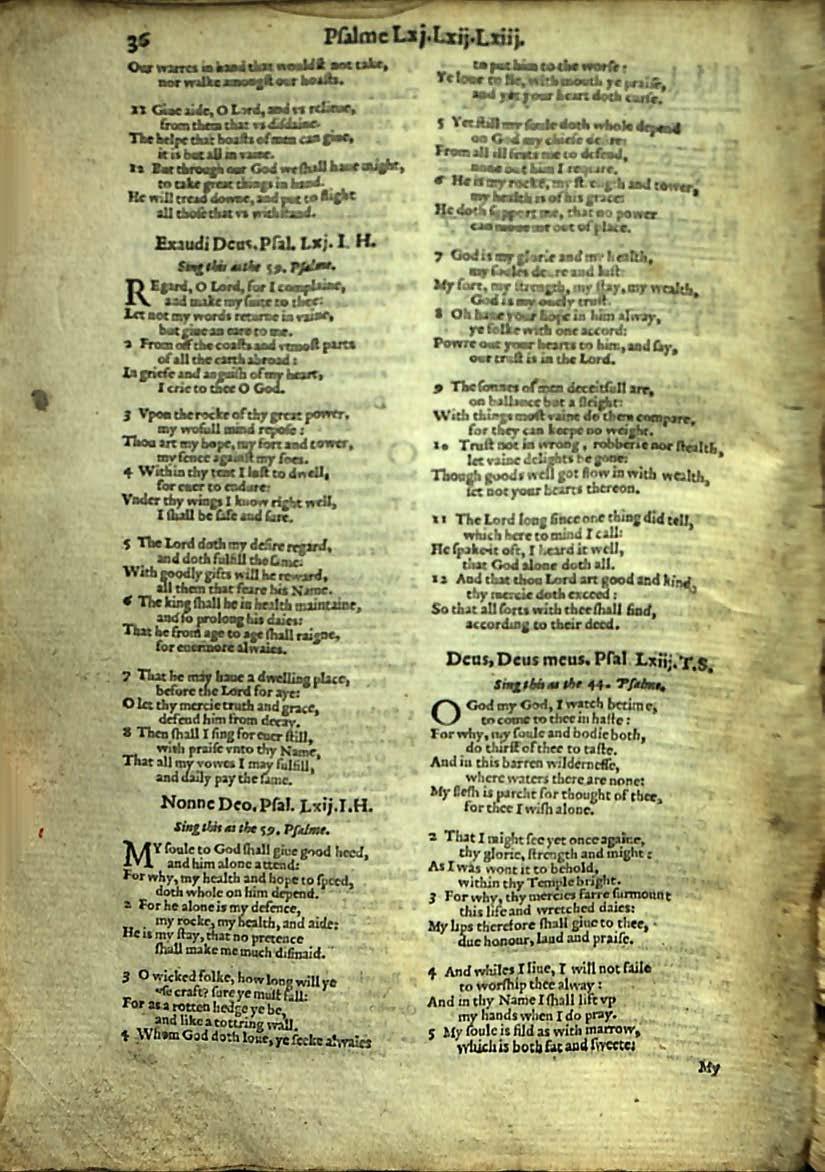 36
Psalme Lxj.Lxij.Lxiij.
Our warres in hand that wouldst not take,
nor walke amongst our hoasts.
11 Giue aide, O Lord, and vs relieue,
from them that vs disdaine.
The helpe that hoasts of men can giue,
it is but all in vaine.
12 But through our God we shall haue might,
to take great things in hand.
He will tread downe, and put to flight
all those that vs withstand.
Exaudi Deus. Psal. Lxj. I. H.
Sing this as the 59. Psalme.
REgard, O Lord, for I complaine,
and make my suite to thee:
Let not my words returne in vaine,
but giue an eare to me.
2 From off the coasts and vtmost parts
of all the earth abroad:
In griefe and anguish of my heart,
I crie to thee O God.
3 Vpon the rocke of thy great power,
my wofull mind repose:
Thou art my hope, my fort and tower,
my fence against my foes.
4 Within thy tent I lust to dwell,
for euer to endure:
Vnder thy wings I know right well,
I shall be safe and sure.
5 The Lord doth my desire regard,
and doth fulfill the same:
With goodly gifts will he reward,
all them that feare his Name.
6 The king shall he in health maintaine,
and so prolong his daies:
That he from age to age shall raigne,
for euermore alwaies.
7 That he may haue a dwelling place,
before the Lord for aye:
O let thy mercie truth and grace,
defend him from decay.
8 Then shall I sing for euer still,
with praise vnto thy Name,
That all my vowes I may fulfill,
and daily pay the same.
Nonne Deo. Psal. Lxij. I. H.
Sing this as the 59. Psalme.
MY soule to God shall giue good heed,
and him alone attend:
For why, my health and hope to speed,
doth whole on him depend.
2 For he alone is my defence,
my rocke, my health, and aide:
He is my stay, that no pretence
shall make me much dismaid.
3 O wicked folke, how long will ye
vse craft? sure ye must fall:
For as a rotten hedge ye be,
and like a tottring wall.
4 Whom God doth loue, ye seeke alwaies
to put him to the worse:
Ye loue to lie, with mouth ye praise,
and yet your heart doth curse.
5 Yet still my soule doth whole depend
on God my chiefe desire:
From all ill feats me to defend,
none but him I require.
6 He is my rocke, my strength and tower,
my health is of his grace:
He doth support me, that no power
can moue me out of place.
7 God is my glorie and my health,
my soules desire and lust:
My fort, my strength, my stay, my wealth,
God is my onely trust.
8 Oh haue your hope in him alway,
ye folke with one accord:
Powre out your hearts to him, and say,
our trust is in the Lord.
9 The sonnes of men deceitfull are,
on ballance but a sleight:
With things most vaine do them compare,
for they can keepe no weight.
10 Trust not in wrong, robberie nor stealth,
let vaine delights be gone:
Though goods well got flow in with wealth,
set not your hearts thereon.
11 The Lord long since one thing did tell,
which here to mind I call:
He spake it oft, I heard it well,
that God alone doth all.
12 And that thou Lord art good and kind,
thy mercie doth exceed:
So that all sorts with thee shall find,
according to their deed.
Deus, Deus meus. Psal Lxiij. T.S.
Sing this as the 44. Psalme.
O God my God, I watch betime,
to come to thee in haste:
For why, my soule and bodie both,
do thirst of thee to taste.
And in this barren wildernesse,
where waters there are none:
My flesh is parcht for thought of thee,
for thee I wish alone.
2 That I might see yet once againe,
thy glorie, strength and might:
As I was wont it to behold,
within thy Temple bright.
3 For why, thy mercies farre surmount
this life and wretched daies:
My lips therefore shall giue to thee,
due honour, laud and praise.
4 And whiles I liue, I will not faile
to worship thee alway:
And in thy Name I shall lift vp
my hands when I do pray.
5 My soule is fild as with marrow,
which is both fat and sweete:
My